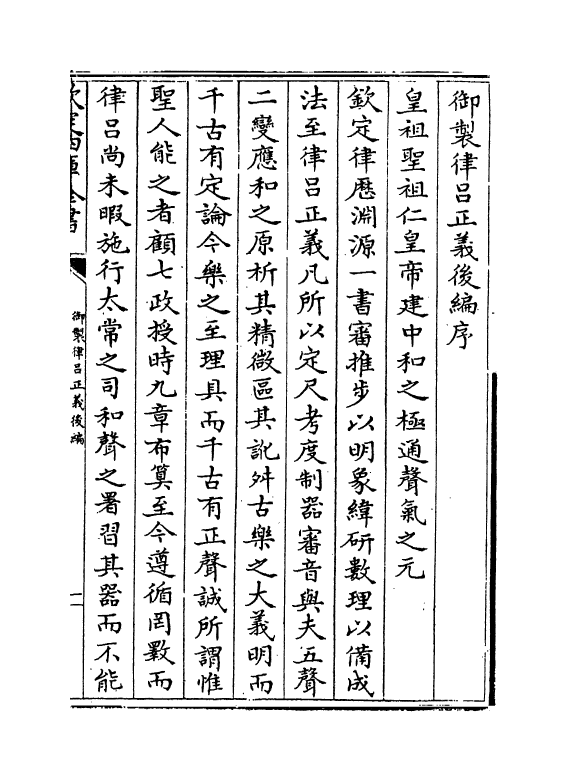 御製律呂正義後編序
皇祖聖祖仁皇帝建中和之極通聲氣之元
欽定律歷淵源一書審推步以明象緯研數理以備成
法至律呂正義凡所以定尺考度制器審音與夫五聲
二變應和之原析其精微區其訛舛古樂之大義明而
千古有定論今樂之至理具而千古有正聲誠所謂惟
聖人能之者顧七政授時九章布算至今遵循罔斁而
律呂尚未暇施行太常之司和聲之署習其器而不能
欽定四庫全書
御製律呂正義後編
一